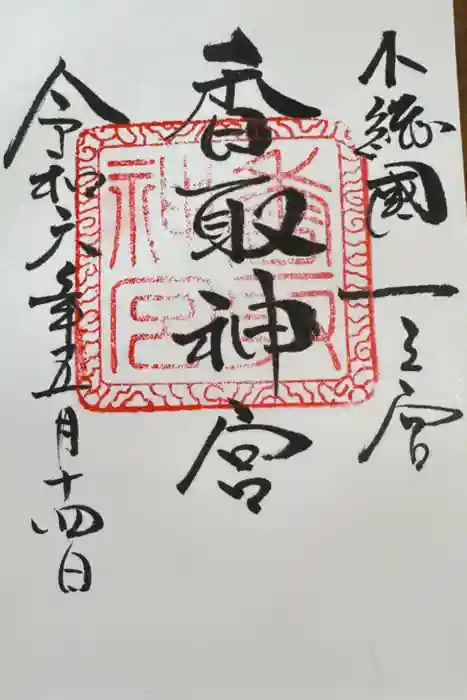 下総國一之宮
香取神宮
令和六年五月十四日
香取
神宮